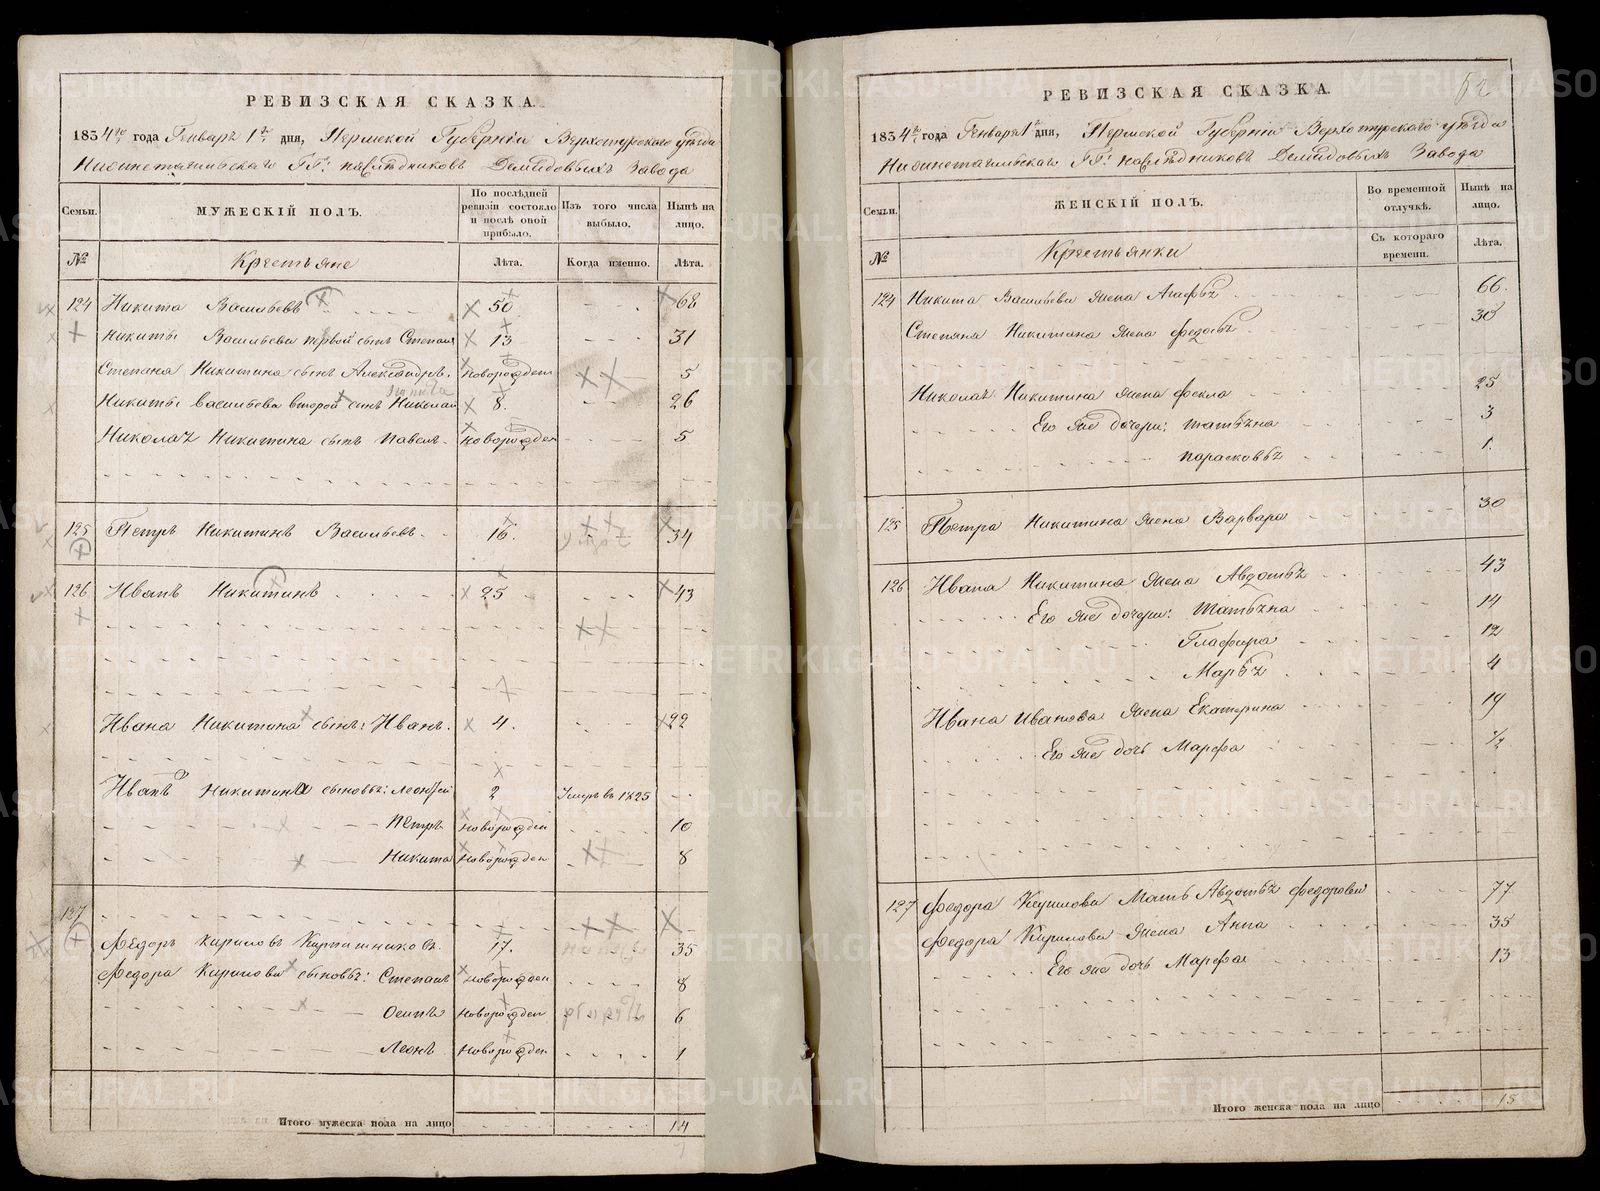 РЕВИЗСКАЯ СКАЗКА.
1834го года Генваря 1го дня, Пермской Губернiи Верхотурскаго уѣзда
Нижнетагильскаго ГГ: наслѣдниковъ Демидовыхъ Завода
Семьи. МУЖЕСКІЙ ПОЛЪ. По послѣдней ревизіи состояло и послѣ оной прибыло. Изъ того числа выбыло. Нынѣ на лицо.
№ Крестьяне Лѣта. Когда именно. Лѣта.
124 Никита Васильевъ 50 68
Никиты Васильева первой сынъ Степанъ 13 31
Степана Никитина сынъ Александръ. новорожден 5
Никиты Васильева второй сынъ Николай 8. 26
Николая Никитина сынъ Павелъ новорожден 5
125 Петръ Никитинъ Васильевъ 16. 34
126 Иванъ Никитинъ 25 43
Ивана Никитина сынъ: Иванъ. 4. 22
Ивана Никитина сыновья: Леонтей 2 Умеръ въ 1825
Петръ новорожден 10
Никита новорожден 8
127
Федоръ Кириловъ Кирпишниковъ. 17. 35
Федора Кирилова сыновья: Степанъ новорожден 8
Осипъ новорожден 6
Леонъ новорожден 1
Итого мужеска пола на лицо 14
62
РЕВИЗСКАЯ СКАЗКА.
1834го года Генваря 1го дня, Пермской Губернiи Верхотурскаго уѣзда
Нижнетагильскаго ГГ: наслѣдниковъ Демидовыхъ Завода
Семьи. ЖЕНСКІЙ ПОЛЪ. Во временной отлучкѣ. Нынѣ на лицо.
№ Крестьянки Съ котораго времени. Лѣта.
124 Никиты Васильева жена Агафья 66.
Степана Никитина жена Федосья 30
Николая Никитина жена Фекла 25
Его же дочери: Татьяна 3
Парасковья 1.
125 Петра Никитина жена Варвара 30
126 Ивана Никитина жена Авдотья 43
Его же дочери: Татьяна 14
Глафира 12
Марья 4
Ивана Иванова жена Екатерина 19
Его же дочь Марфа 1/2
127 Федора Кирилова Мать Авдотья Федорова 77
Федора Кирилова жена Анна 35
Его же дочь Марфа 13
Итого женска пола на лицо 15
METRIKI.GASO-URAL.RU